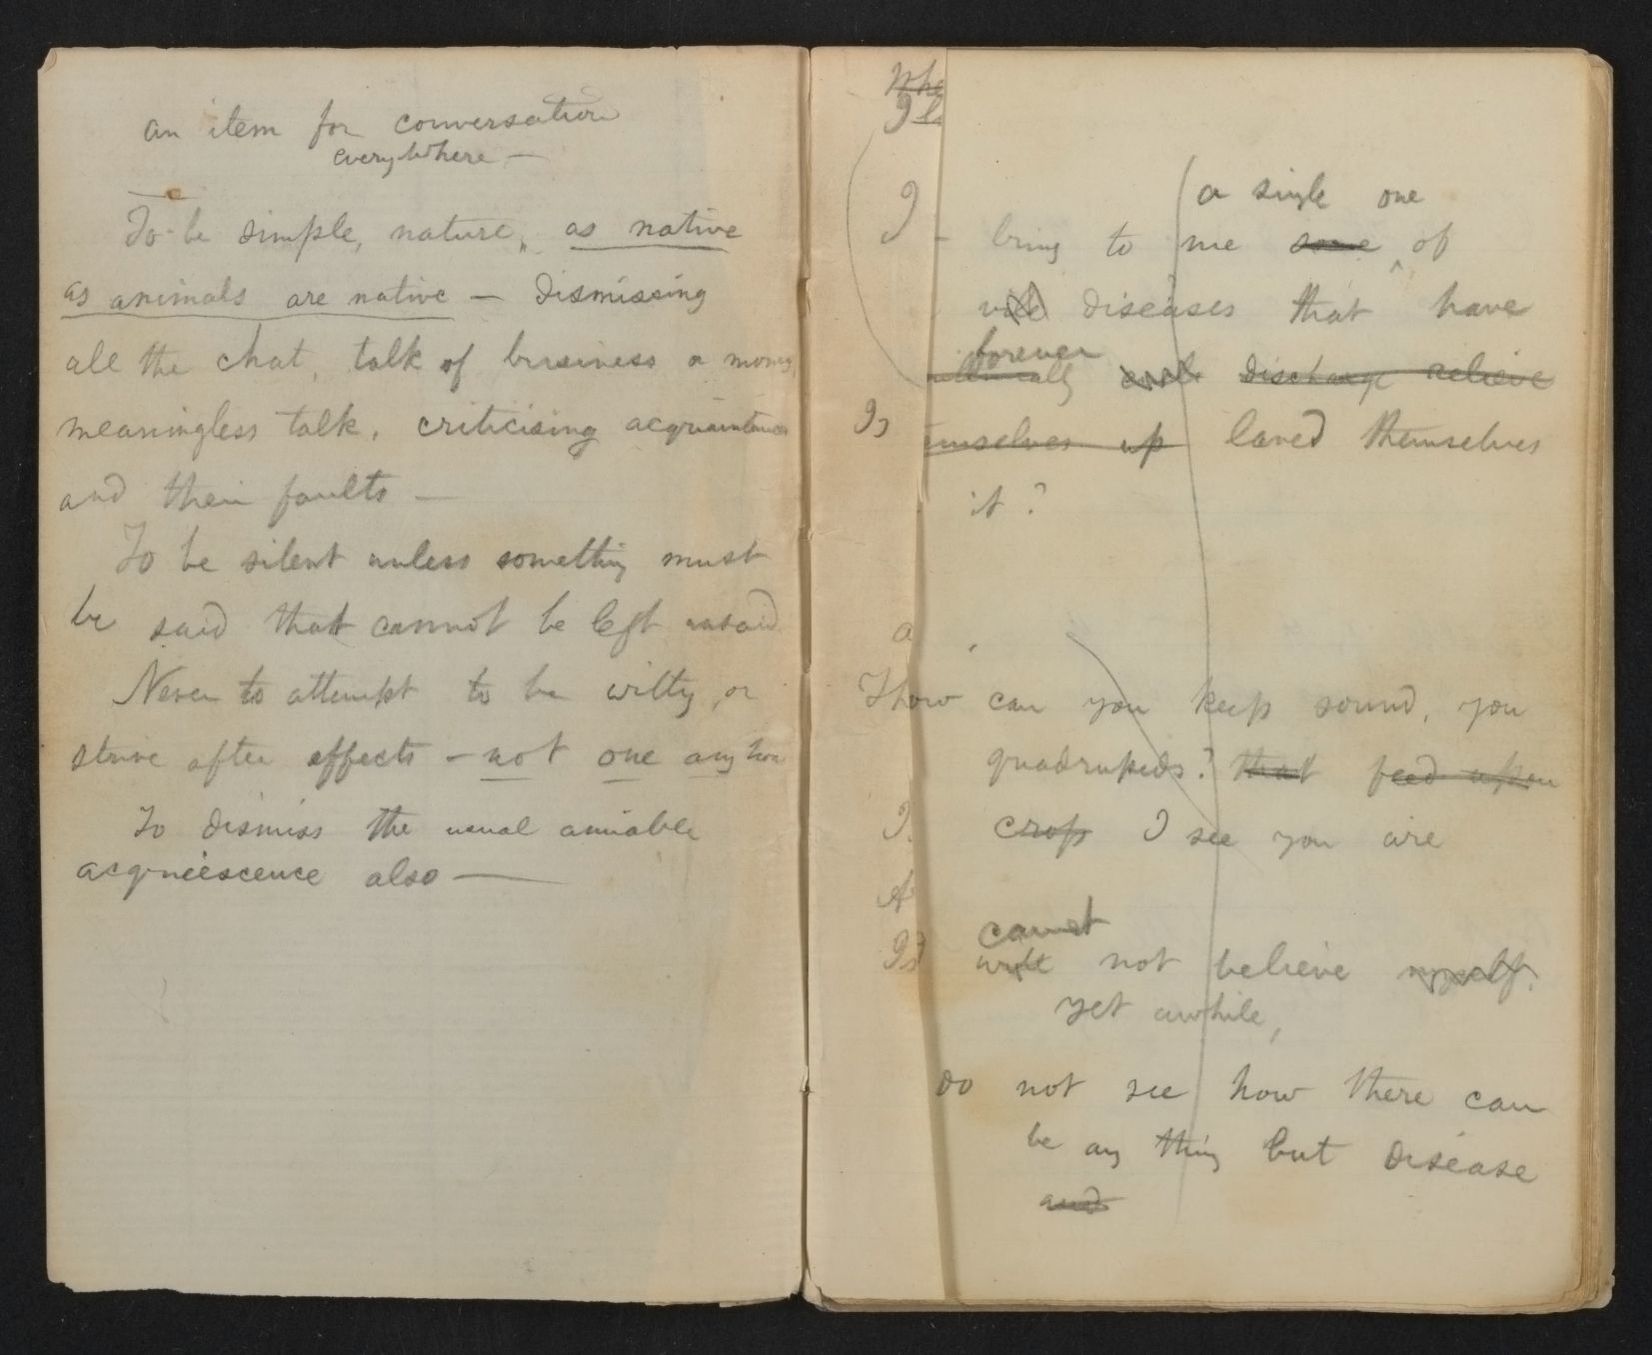 an item for conversation
everywhere —
To be simple, nature, as native
as animals are native — dismissing
all the chat, talk of business or money,
meaningless talk, criticising acquaintances
and their faults —
To be silent unless something must
be said that cannot be left unsaid
Never to attempt to be witty, or
strive after effects — not one any how
To dismiss the usual amiable
acquiescence also —
Whe
I
a single one
I bring to me some of
vile diseases that have
forever
discharge relieve
Is emselves up laved themselves
it?
a
T how can you keep sound, you
quadrupeds? that feed upon
I crop I see you are
A
cannot
Is will not believe myself.
yet awhile,
do not see how there can
be any thing but disease
and